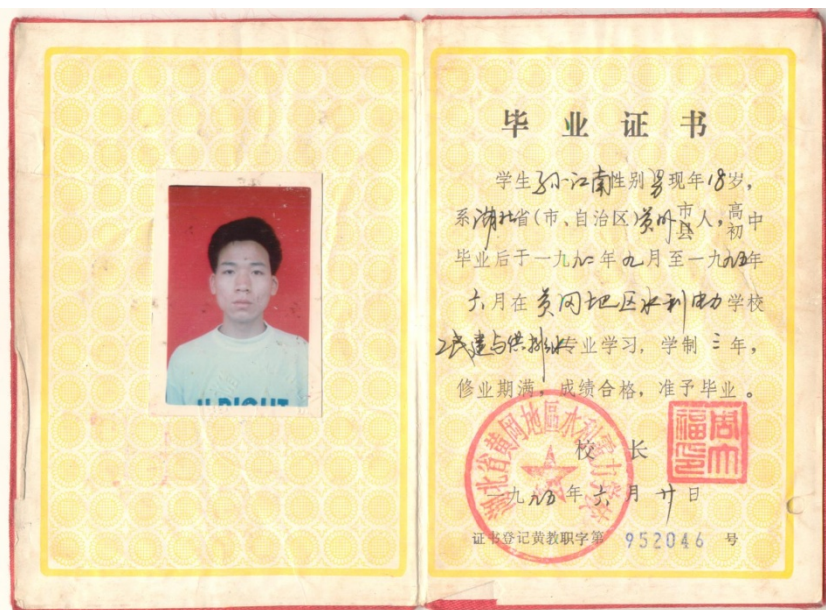 毕业证书
学生孙江南性别男现年18岁,
系湖北省(市、自治区)黄州市县人,高初中
毕业后于一九九二年九月至一九九五年
六月在黄冈地区水利电力学校
工民建与供排水专业学习,学制三年,
修业期满,成绩合格,准予毕业。
校长
湖北省黄冈地區水利電力学校
一九九五年六月廿日
证书登记黄教职字第952046号